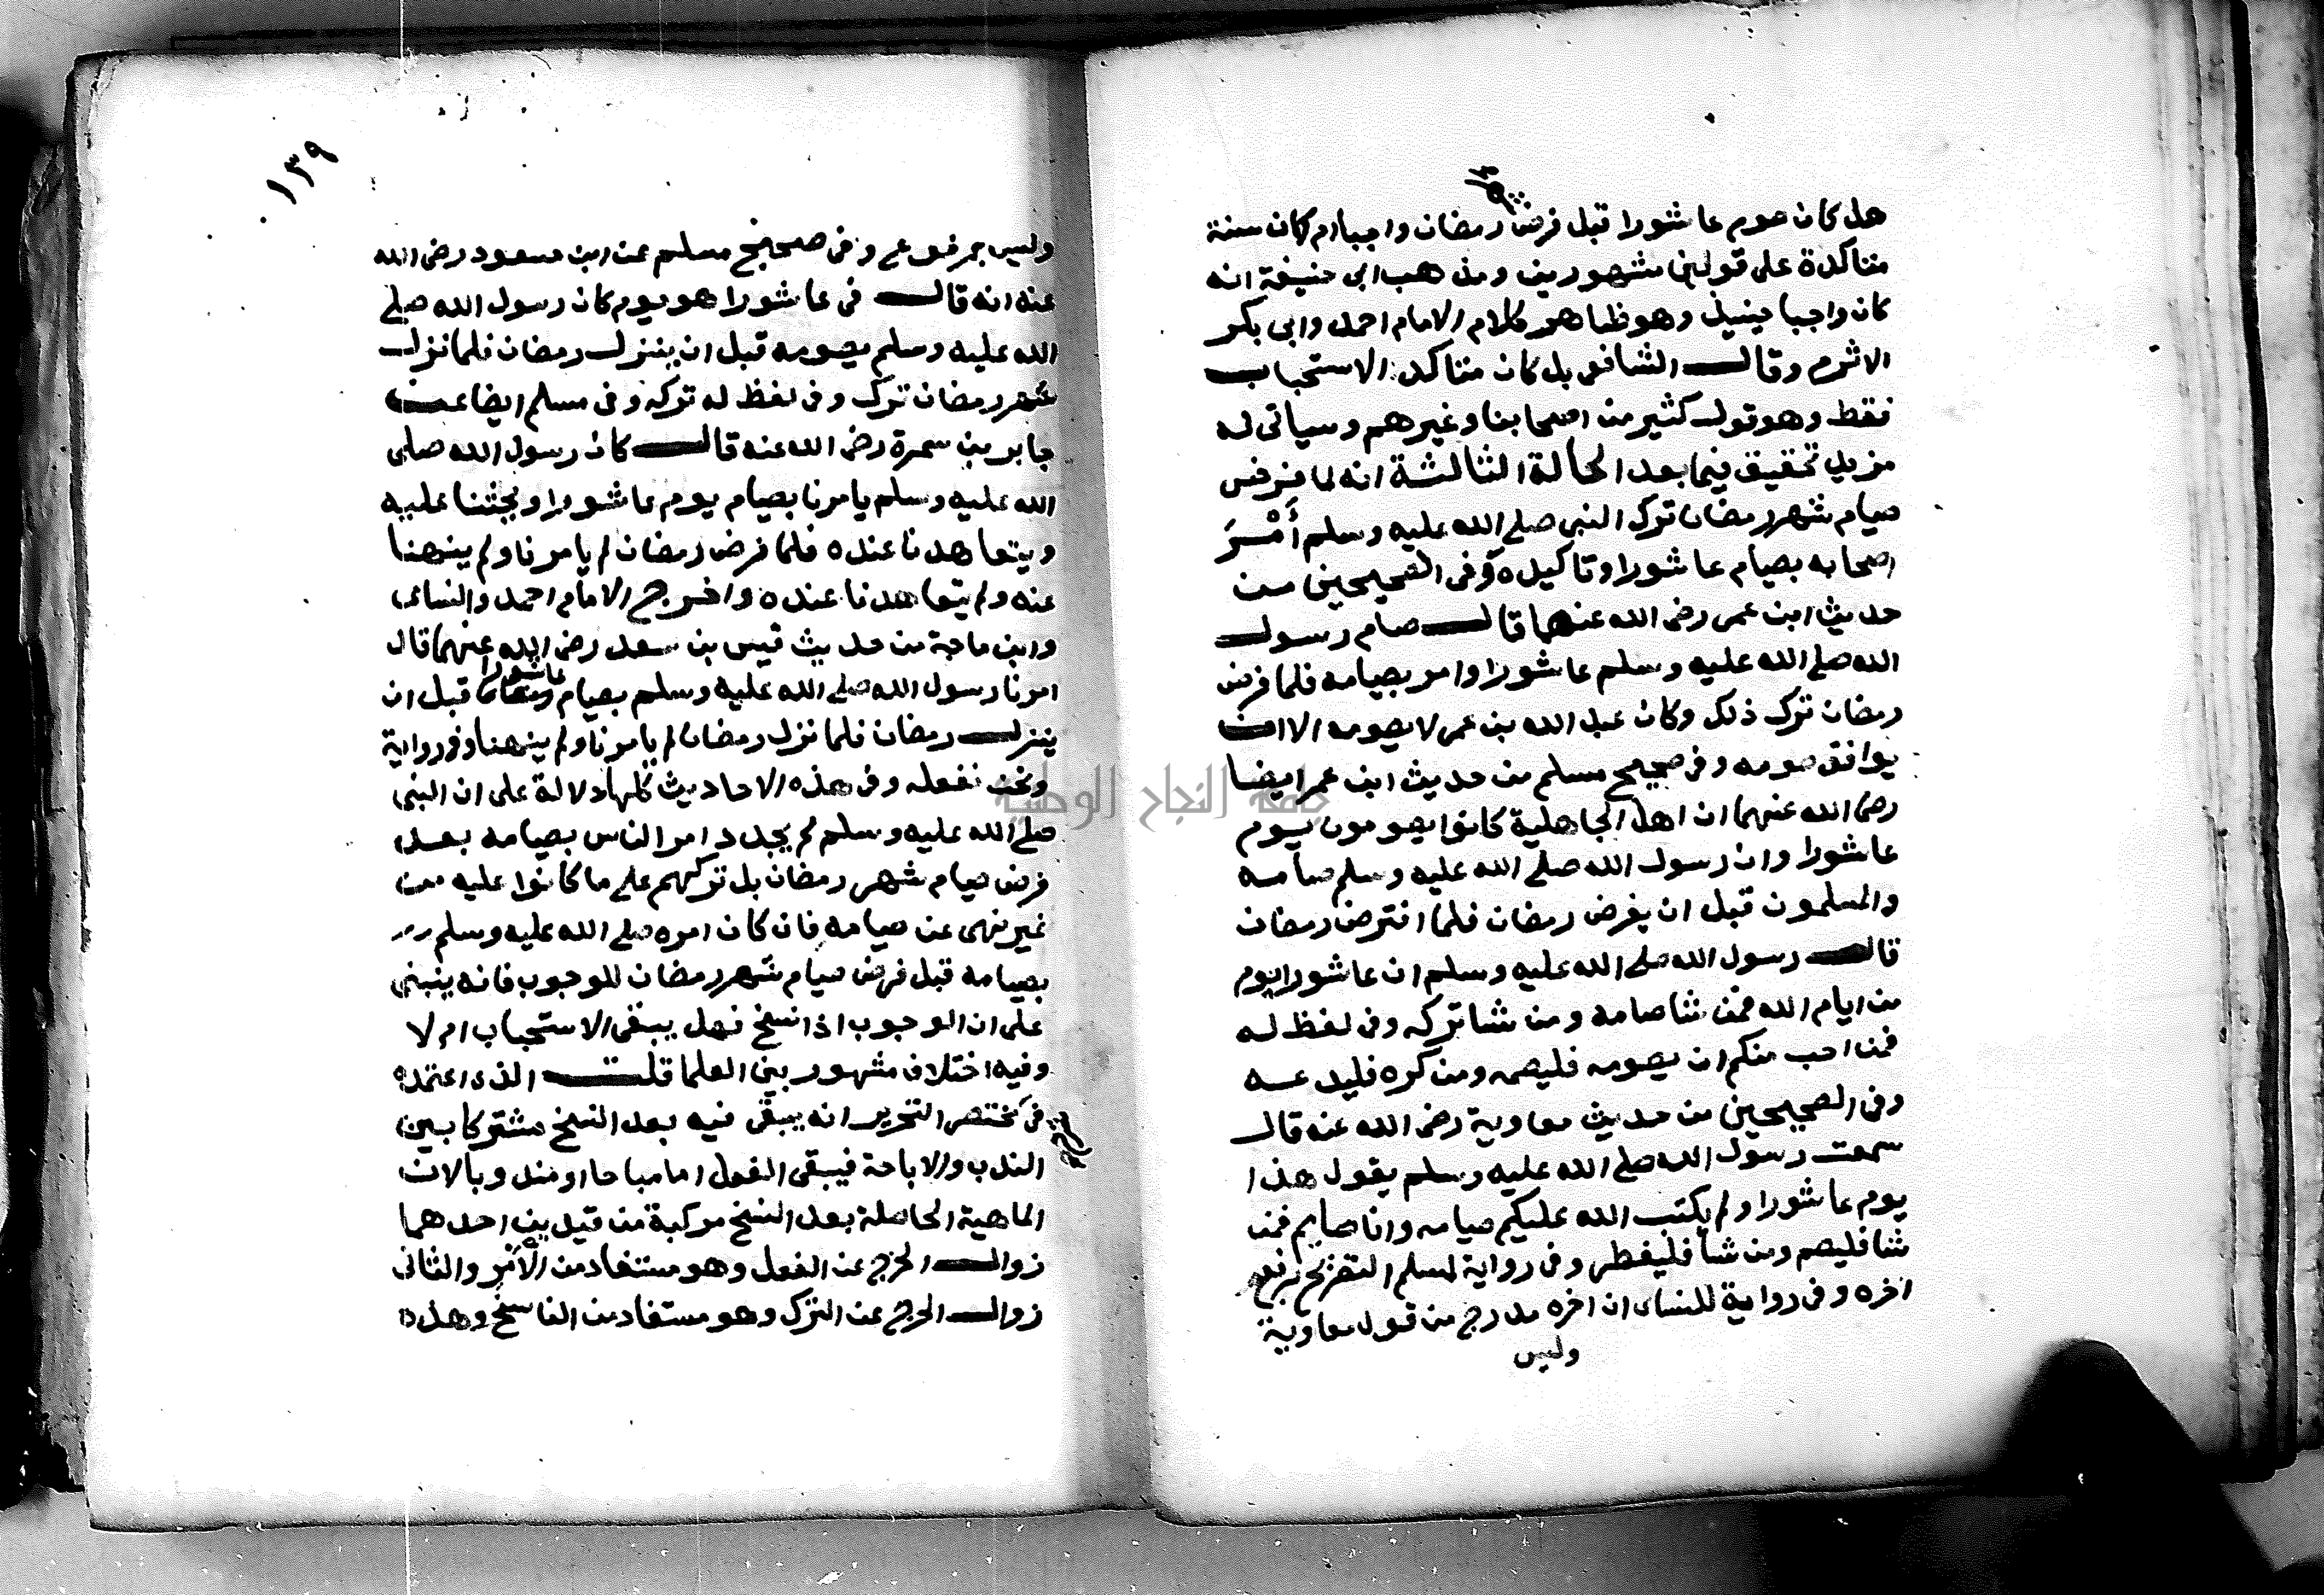 هل كان صوم عاشورا قبل فرض رمضان واجبا ام كان سنة
متاكدة على قولين مشهورين ومذهب ابى حنيفة انه
كان واجبا حينيذ وهو ظاهر كلام الامام احمد وابى بكر
الاثرم وقال الشافعى بل كان متاكد الاستحباب
فقط وهو قول كثير من اصحابنا وغيرهم وسياتى له
مزيد تحقيق فيما بعد الحالة الثالثة انه لما فرض
صيام شهر رمضان ترك النبى صلى الله عليه وسلم أَمْرَ
اصحابه بصيام عاشورا وتاكيده وفى الصحيحين من
حديث ابن عمر رضى الله عنهما قال صام رسول
الله صلى الله عليه وسلم عاشورا وامر بصيامه فلما فرض
رمضان ترك ذلك وكان عبد الله بن عمر لا يصومه الا ان
يوافق صومه وفى صحيح مسلم من حديث ابن عمر ايضا
رضى الله عنهما ان اهل الجاهلية كانوا يصومون يوم
عاشورا وان رسول الله صلى الله عليه وسلم صامه
والمسلمون قبل ان يفرض رمضان فلما افترض رمضان
قال رسول الله صلى الله عليه وسلم ان عاشورا يوم
من ايام الله فمن شا صامه ومن شا تركه وفى لفظ له
فمن احب منكم ان يصومه فليصمه ومن كره فليدعه
وفى الصحيحين من حديث معاوية رضى الله عنه قال
سمعت رسول الله صلى الله عليه وسلم يقول هذا
يوم عاشورا ولم يكتب الله عليكم صيامه وانا صايم فمن
شا فليصم ومن شا فليفطر وفى رواية لمسلم التصريح برفع
اخره وفى رواية للنساى ان اخره مدرج من قول معاوية
وليس
١٣٩
وليس بمرفوع وفى صحيح مسلم عن ابن مسعود رضى الله
عنه انه قال فى عاشورا هو يوم كان رسول الله صلى
الله عليه وسلم يصومه قبل ان ينزل رمضان فلما نزل
شهر رمضان ترك وفى لفظ له تركه وفى مسلم ايضا عن
جابر بن سمرة رضى الله عنه قال كان رسول الله صلى
الله عليه وسلم يامرنا بصيام يوم عاشورا ويحثنا عليه
ويتعاهدنا عنده فلما فرض رمضان لم يامرنا ولم ينهنا
عنه ولم يتعاهدنا عنده واخرج الامام احمد والنساى
وابن ماجة من حديث قيس بن سعد رضى الله عنهما قال
امرنا رسول الله صلى الله عليه وسلم بصيام عاشورا قبل ان
ينزل رمضان فلما نزل رمضان لم يامرنا ولم ينهنا وفى رواية
ونحن نفعله وفى هذه الاحاديث كلها دلالة على ان النبى
صلى الله عليه وسلم لم يجدد امر الناس بصيامه بعد
فرض صيام شهر رمضان بل تركهم على ما كانوا عليه من
غير نهى عن صيامه فان كان امره صلى الله عليه وسلم
بصيامه قبل فرض صيام شهر رمضان للوجوب فانه ينبنى
على ان الوجوب اذا نسخ فهل يبقى الاستحباب ام لا
وفيه اختلاف مشهور بين العلما قلت الذى اعتمده
فى مختصر التحرير انه يبقى فيه بعد النسخ مشتركا بين
الندب والاباحة فيبقى الفعل اما مباحا او مندوبا لان
الماهية الحاصلة بعد النسخ مركبة من قيدين احدهما
زوال الحرج عن الفعل وهو مستفاد من الأمر والثانى
زوال الحرج عن الترك وهو مستفاد من الناسخ وهذه
جامعة النجاح الوطنية